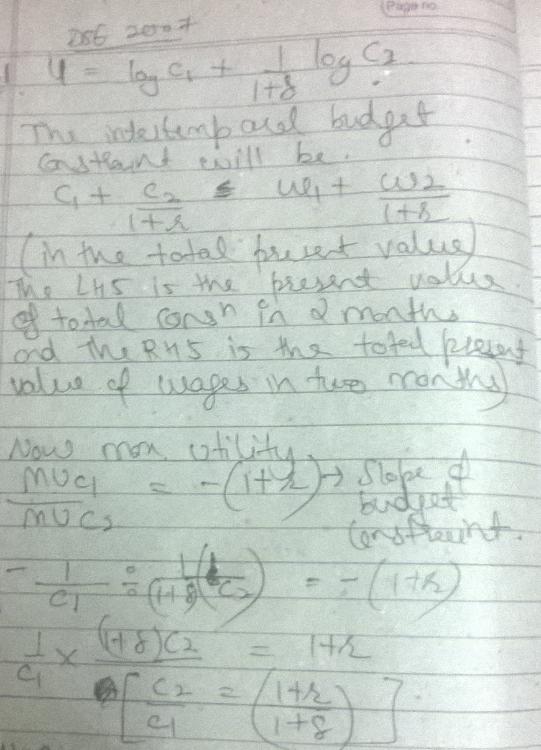 Page no.
DSE 2007
1 U = log C1 + 1/(1+δ) log C2.
The intertemporal budget
constraint will be.
C1 + C2/(1+r) ≤ w1 + w2/(1+r)
(in the total present value)
The LHS is the present value
of total consn in 2 months
and the RHS is the total present
value of wages in two months)
Now max utility
MUC1/MUC2 = -(1+r) → Slope of
budget
constraint.
- 1/C1 ÷ 1/(1+δ) (1/C2) = -(1+r)
1/C1 × (1+δ)C2 = 1+r
[C2/C1 = (1+r/1+δ)]